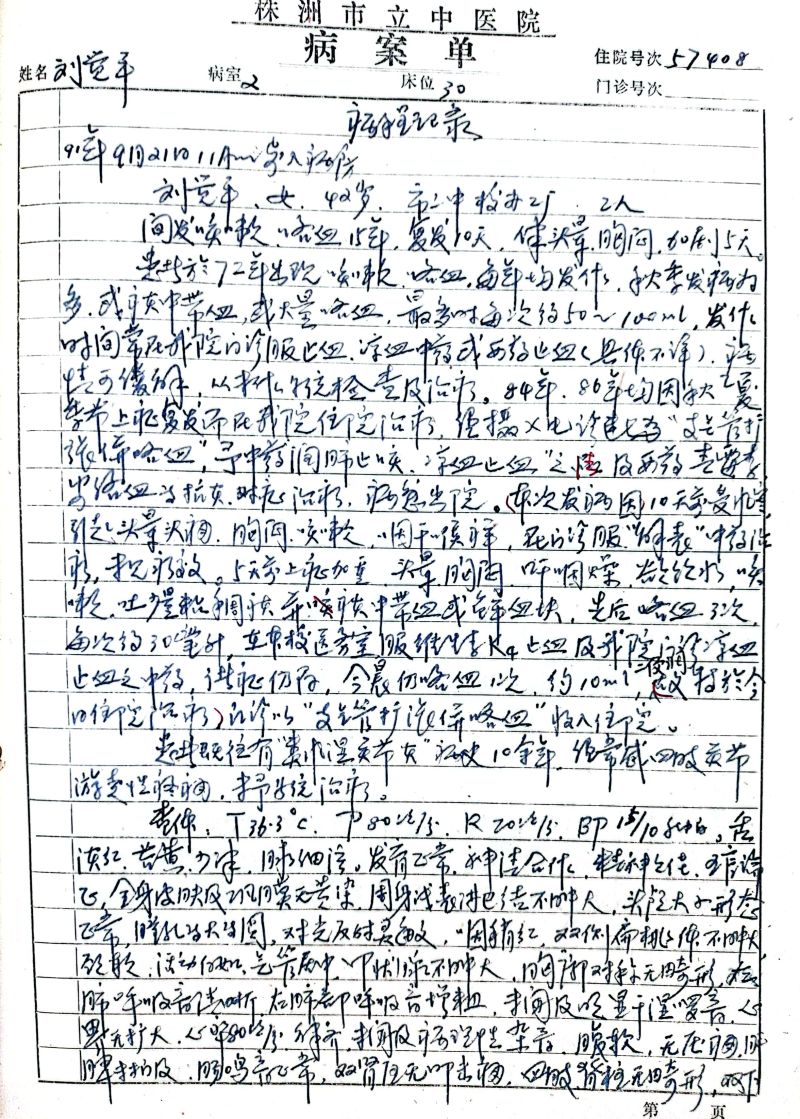 株洲市立中医院
病案单
姓名 刘党平 病室 2 床位 30 住院号次 57408
门诊号次
病程记录
91年9月21日11Am 入病房
刘党平、女、42岁、市二中校办工厂、工人
间发咳嗽、咯血15年,复发10天,伴头晕、胸闷、加剧5天。
患者於72年出现咳嗽、咯血,每年均发作,秋季发病为
多,或痰中带血,或大量咯血,最多时每次约50~100ml,发作
时间常在我院门诊服止血、凉血中药或西药止血(具体不详),病
情可缓解,以未作系统检查及治疗。84年、86年均因秋夏
季节上症复发而在我院住院治疗,经摄X光诊断为“支气管扩
张併咯血”,予中药润肺止咳、凉血止血 及西药青霉素
咯血与抗炎、对症治疗,病愈出院。本次发病因10天前受凉
引起头晕头痛、胸闷、咳嗽、咽干喉痒,在门诊服“解表”中药治
疗,未见疗效。5天前上症加重,头晕胸闷、咽燥、欲饮水,咳
嗽、吐少量粘稠痰 痰中带血或鲜血块,先后咯血3次,
每次约30毫升,在本校医务室服维生素K4止血及我院门诊凉血
止血之中药,但症仍存,今晨仍咯血1次,约10ml, 特於今
日住院治疗)门诊以“支气管扩张併咯血”收入住院。
患者既往有“类风湿关节炎”病史10余年,经常感四肢关节
游走性疼痛,未予系统治疗。
查体:T 36.3°C P 80次/分 R 20次/分 BP 15/10 舌
淡红、苔黄、少津,脉细 。发育正常,神清合作,精神 佳,
正,全身皮肤及巩膜无黄染,周身浅表淋巴结不肿大,头颅大小形态
正常,瞳孔等大等圆,对光反射灵敏,咽稍红,双侧扁桃体不肿大,
颈软、活动自如,气管居中,甲状腺不肿大,胸廓对称无畸形,左
肺呼吸音清晰 右肺部呼吸音增粗,未闻及明显干湿啰音,心
界无扩大,心率80次/分 律齐 未闻及病理性杂音,腹软,无压痛,肝
脾未扪及,肠鸣音正常,双肾区无叩击痛,四肢脊柱无畸形,双下
第 页